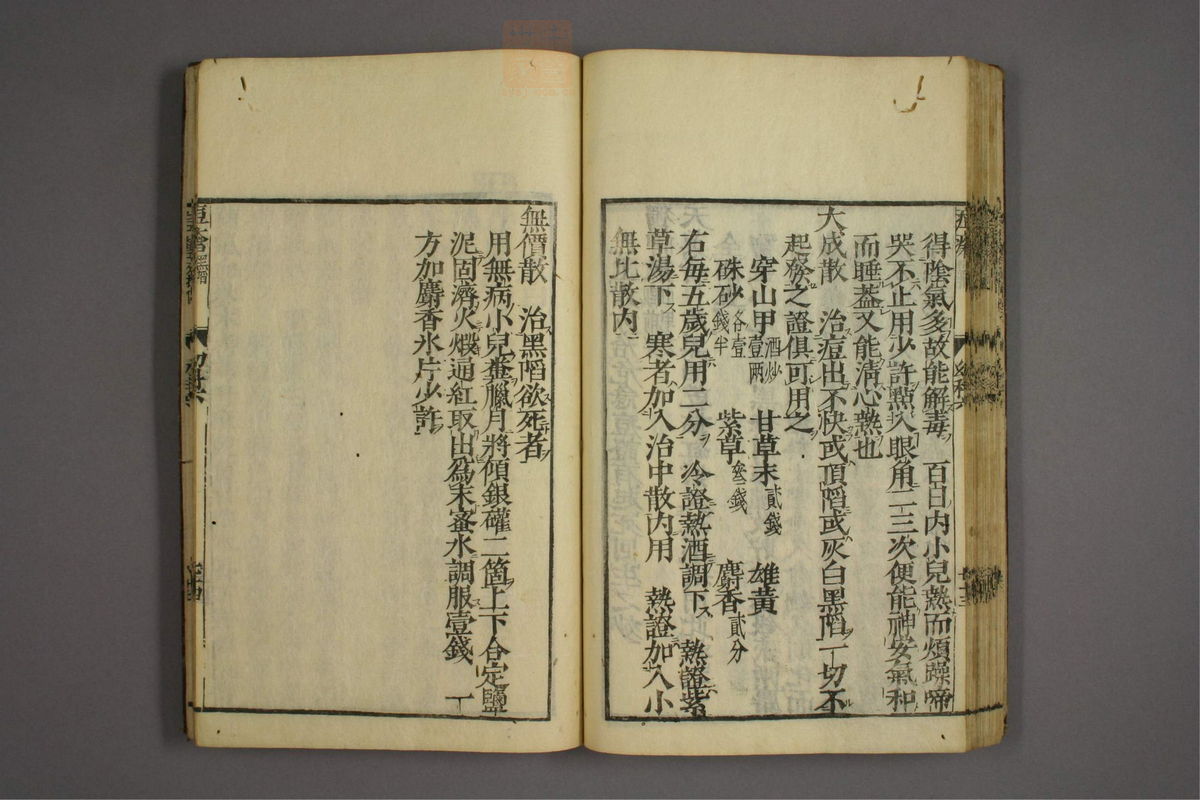 得陰氣多故能解毒 百日内小兒熱而煩躁啼
哭不止用少許點入眼角二三次便能神安氣和
而睡葢又能清心熱也
大成散 治痘出不快或頂陷或灰白黑陷一切不
起發之證俱可用之
穿山甲酒炒壹兩 甘草末貳錢 雄黄
硃砂各壹錢半 紫草叁錢 麝香貳分
右每五歲兒用二分 冷證熱酒調下 熱證紫
草湯下 寒者加入治中散内用 熱證加入小
無比散内
無價散 治黑陷欲死者
用無病小兒糞臘月將傾銀罐二箇上下合定鹽
泥固濟火煅通紅取出爲末蜜水調服壹錢 一
方加麝香氷片少許